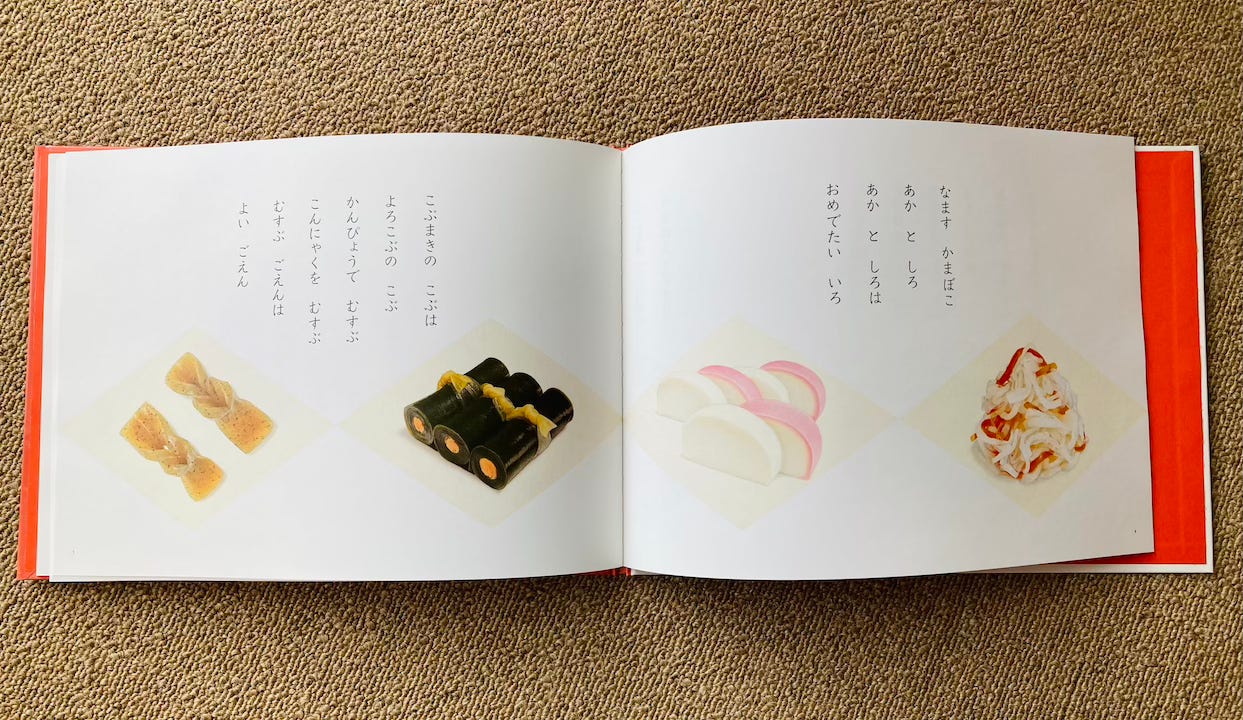 なます　かまぼこ
あか　と　しろ
あか　と　しろは
おめでたい　いろ
こぶまきの　こぶは
よろこぶの　こぶ
かんぴょうで　むすぶ
こんにゃくを　むすぶ
むすぶ　ごえんは
よい　ごえん